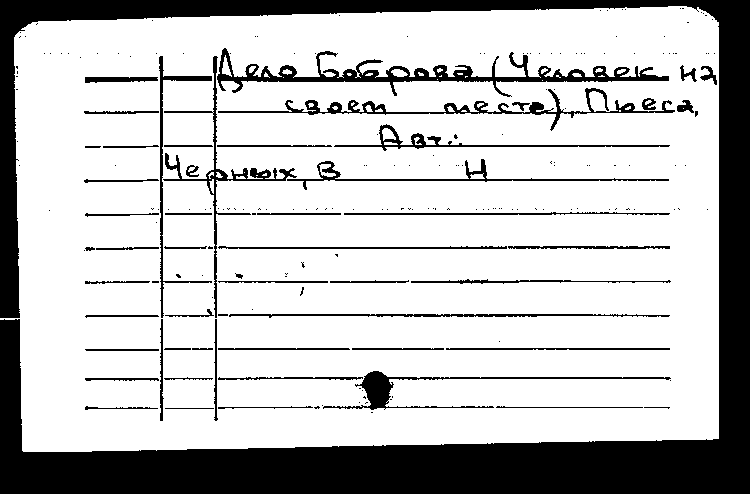 Дело Боброва (Человек на
своем месте), Пьеса,
Авт.:
Черных, В Н